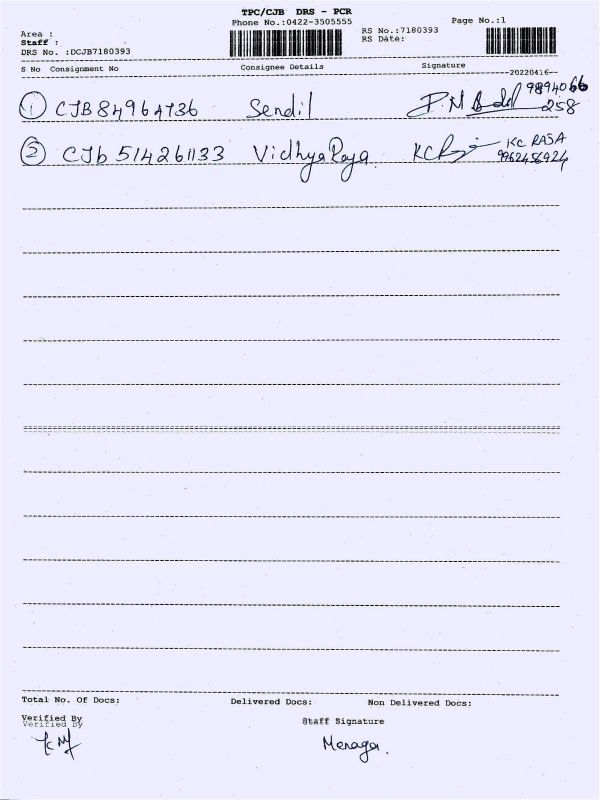 TPC/CJB DRS - PCR
Phone No.:0422-3505555
Page No.:1
Area :
Staff :
DRS No. :DCJB7180393
RS No.:7180393
RS Date:
S No Consignment No Consignee Details Signature
--20220416--
1 CJB84964736 Sendil P.M 9894066
258
2 CJb 514261133 VidhyaRaja KC KC RASA
9962456924
Total No. Of Docs: Delivered Docs: Non Delivered Docs:
Verified By Staff Signature
Verified By
Menaga